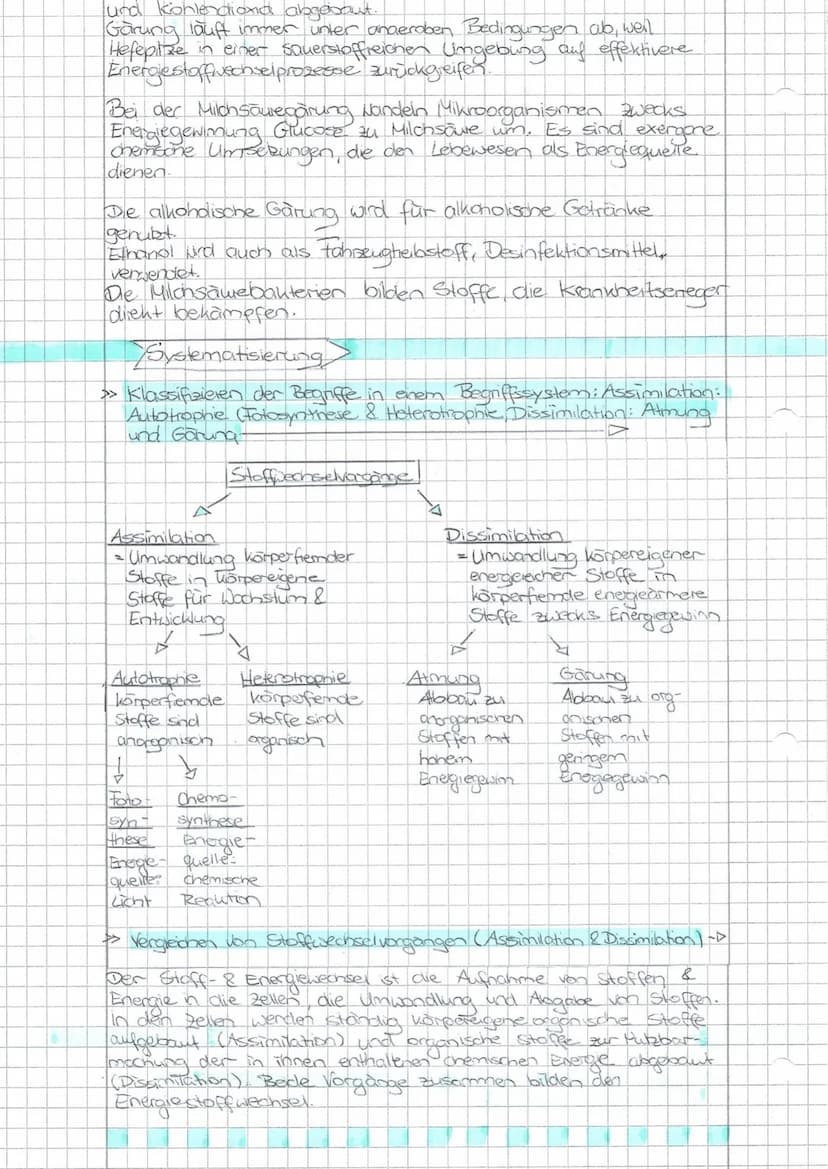 und Kohlendioxid abgebaut.
Gärung läuft immer unter anaeroben Bedingungen ab, weil
Hefepilze in einer sauerstoffreichen Umgebung auf effektivere
Energiestoffwechselprozesse zurückgreifen.
Bei der Milchsäuregärung wandeln Mikroorganismen zwecks
Energiegewinnung Glucose zu Milchsäure um. Es sind exergone
chemische Umsetzungen, die den Lebewesen als Energiequelle
dienen.
Die alkoholische Gärung wird für alkoholische Getränke
genutzt.
Ethanol wird auch als Fahrzeugheibstoff, Desinfektionsmittel,
verwendet.
Die Milchsäurebakterien bilden Stoffe, die Krankheitserreger
direkt bekämpfen.
Systematisierung
>> Klassifizieren der Begriffe in einem Begriffssystem: Assimilation:
Autotrophie (Fotosynthese & Heterotrophie, Dissimilation: Atmung
und Gärung
Stoffwechselvorgänge
Assimilation
= Umwandlung körperfremder
Stoffe in körpereigene
Stoffe für Wachstum &
Entwicklung
Dissimilation
= Umwandlung körpereigener
energiereicher Stoffe in
körperfremde energieärmere
Stoffe zwecks Energiegewinn
Autotrophie
körperfremde
Stoffe sind
anorganisch
Heterotrophie
körperfremde
Stoffe sind
organisch
Atmung
Abbau zu
anorganischen
Stoffen mit
hohem
Energiegewinn
Gärung
Abbau zu org-
anischen
Stoffen mit
geringem
Energiegewinn
Foto-
syn-
these
Energie-
quelle:
Licht
Chemo-
synthese
Energie-
quelle:
chemische
Reaktion
>> Vergleichen von Stoffwechselvorgängen (Assimilation & Dissimilation)
Der Stoff- & Energiewechsel ist die Aufnahme von Stoffen &
Energie in die Zellen, die Umwandlung und Abgabe von Stoffen.
In den Zellen werden ständig körpereigene organische Stoffe
aufgebaut (Assimilation) und organische Stoffe zur Nutzbar-
machung der in ihnen enthaltenen chemischen Energie abgebaut
(Dissimilation). Beide Vorgänge zusammen bilden den
Energiestoffwechsel.